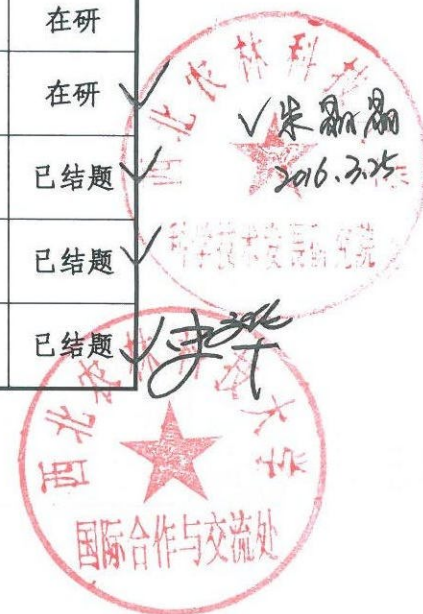 在研
在研 ✓
已结题 ✓
已结题 ✓
已结题 ✓
西北农林科技大学
✓朱
2016.3.25
科学技术发展研究院
西北农林科技大学
国际合作与交流处